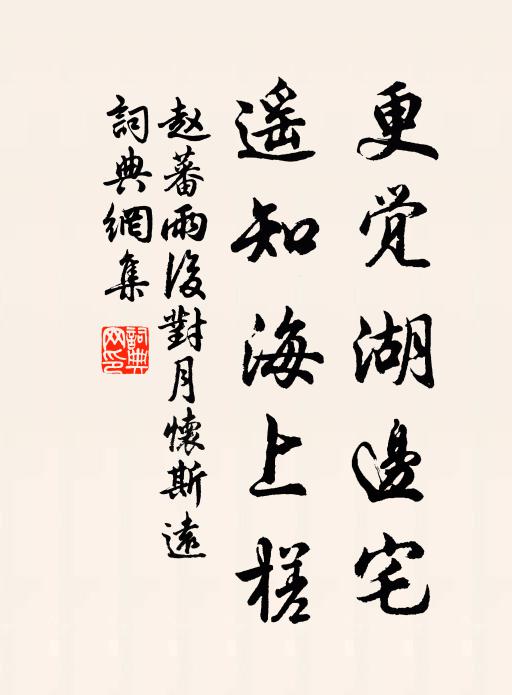 更觉湖邊宅
遥知海上槎
赵蕃雨後對月懷斯遠
詞典網集
詞典網印